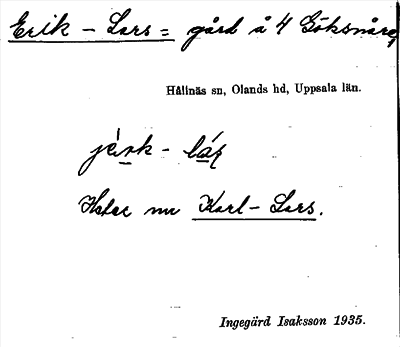 Erik - Lars = gård å 4 Göksnåre,
Hållnäs sn, Olands hd, Uppsala län.
Heter nu Karl- Lars.
Ingegärd Isaksson 1935.